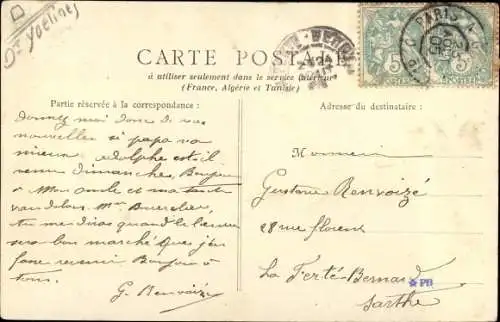 Dr Yvelines
CARTE POSTALE
à utiliser seulement dans le service intérieur
(France, Algérie et Tunisie)
PARIS
5
5
Partie réservée à la correspondance :
donnez moi donc de vos
nouvelles si papa va
mieux adolphe est il
venu dimanches, Bonjour
à Mon oncle et ma tante
Mme
tu me diras quand le
sera bon marché que j'en
fasse revenir Bonjour à
tous.
G. Renvoizé
Adresse du destinataire :
Monsieur
Gustave Renvoizé
28 rue
La Ferté-Bernard
PB
Sarthe